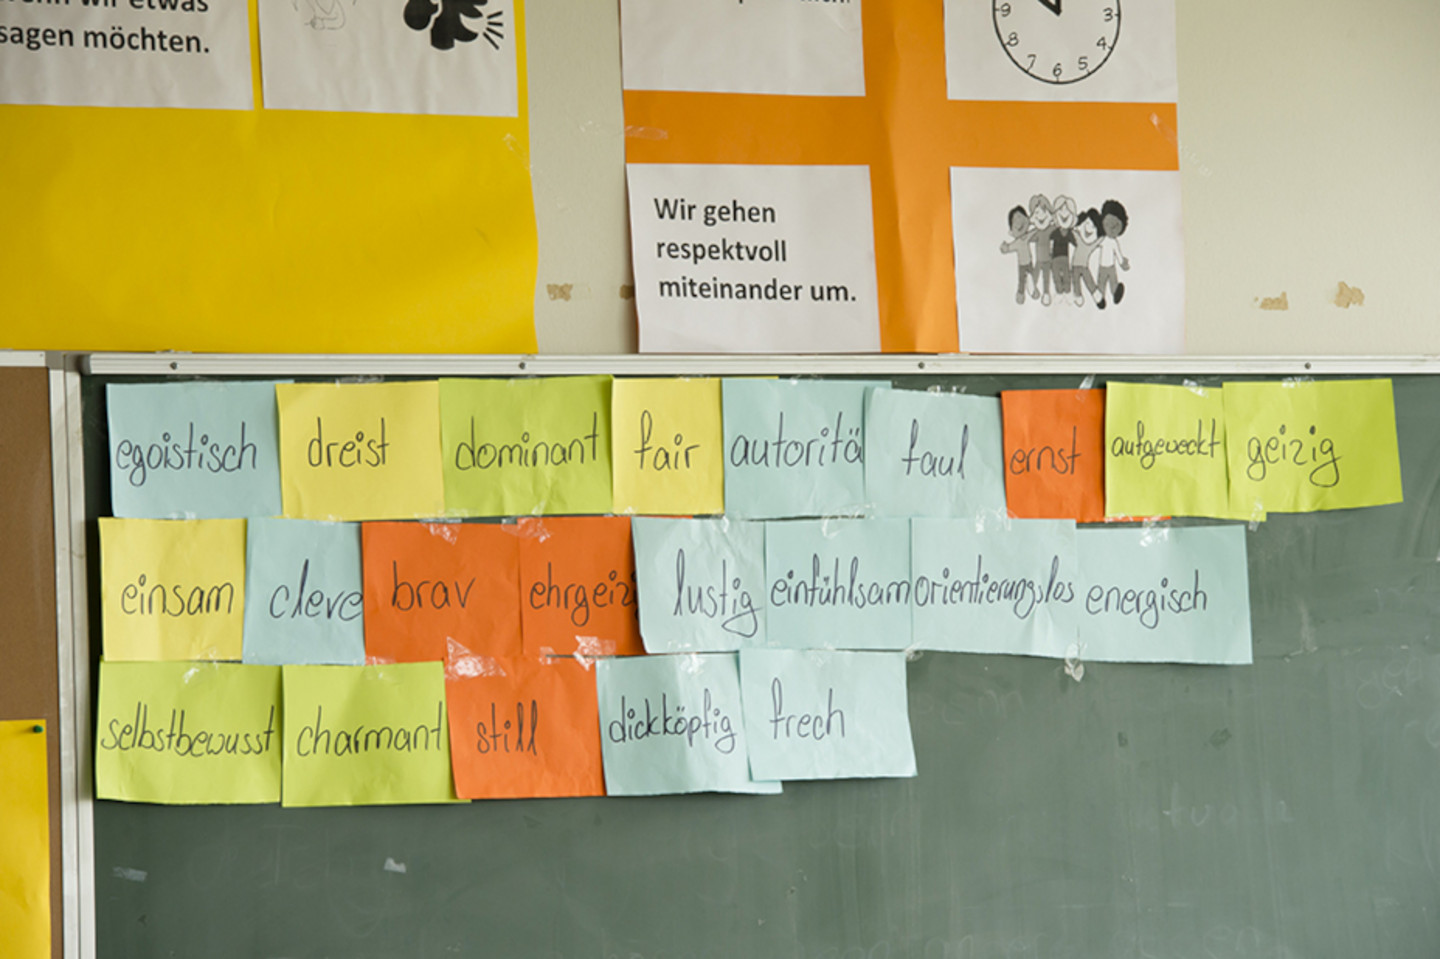 wir etwas
sagen möchten.
9 8 7 6 5 4 3
Wir gehen
respektvoll
miteinander um.
egoistisch dreist dominant fair autoritä faul ernst aufgeweckt geizig
einsam cleve brav ehrgeiz lustig einfühlsam orientierungslos energisch
selbstbewusst charmant still dickköpfig frech